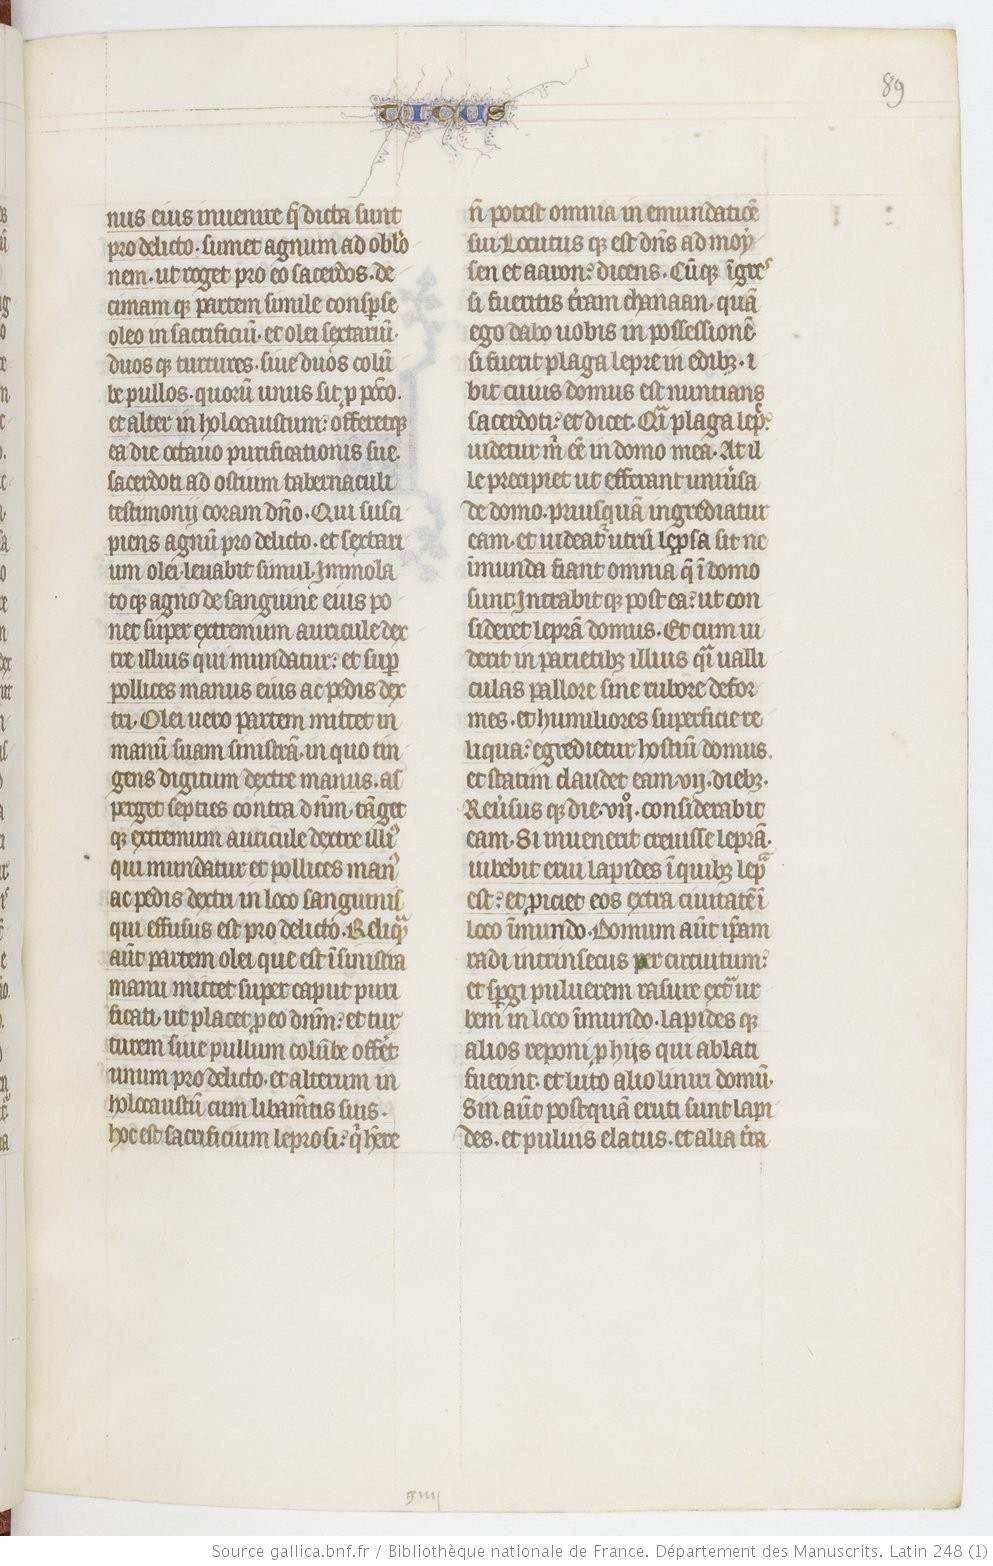 89
TICUS
nus eius inuenire q̄ dicta sunt
pro delicto. sumet agnum ad oblo
nem. ut roget pro eo sacerdos. de
cimam qꝫ partem simile consꝑse
oleo in sacrificiū. et olei sextariū.
duos qꝫ turtures. siue duos colū
be pullos. quorū unus sit ꝓ pcc̄o.
et alter in holocaustum: offeretqꝫ
ea die octauo purificationis sue.
sacerdoti ad ostium tabernaculi
testimonij coram dño. Qui susci
piens agnū pro delicto. et sextari
um olei leuabit simul. Immola
to qꝫ agno de sanguine eius po
net super extremum auricule dex
tre illius qui mundatur: et suꝑ
pollices manus eius ac pedis dex
tri. Olei uero partem mittet in
manū suam sinistrā. in quo tin
gens digitum dextre manus. as
perget septies contra dnm̄. tāget
qꝫ extremum auricule dextre illiꝰ
qui mundatur et pollices manꝰ
ac pedis dextri in loco sanguinis
qui effusus est pro delicto. Reliqͣ
aūt partem olei que est ī sinistra
manu mittet super caput puri
ficati. ut placet ꝓ eo dnm̄: et tur
turem siue pullum colūbe offēt
unum pro delicto. et alterum in
holocaustū cum libam̄tis suis.
hoc est sacrificium leprosi: qͥ hēre
n̄ potest omnia in emundatiōe
sui. Locutus qꝫ est dñs ad moy
sen et aaron: dicens. Cū qꝫ īgres
si fueritis t̄ram chanaan. quā
ego dabo uobis in possessionē.
si fuerit plaga lepre in edibꝫ. i
bit cuius domus est nuntians
sacerdoti: et dicet. Qͣ̄ plaga lep̄e
uidetur m̄ eē in domo mea. At il
le precipiet ut efferant uniūsa
de domo. priusquā ingrediatur
eam. et uideat utrū leꝑsa sit ne
īmunda fiant omnia q̄ ī domo
sunt. Intrabit qꝫ post ea: ut con
sideret leprā domus. Et cum ui
derit in parietibꝫ illius qͣ̄ ualli
culas pallore siue rubore defor
mes. et humiliores superficie re
liqua: egredietur hostiū domus.
et statim claudet eam .vij. diebꝫ.
Reūsus qꝫ die .vijº. considerabit
eam. Si inuenerit creuisse leprā.
iubebit erui lapides ī quibꝫ lepͣ
est: et ꝓiciet eos extra ciuitatē ī
loco īmundo. Domum aūt ip̄am
radi intrinsecus per circuitum:
et sꝑgi puluerem rasure extͣ ur
bem in loco īmundo. lapides qꝫ
alios reponi ꝑ hijs qui ablati
fuerint. et luto alio liniri domū.
Sin aūt postquā eruti sunt lapi
des. et puluis elatus. et alia t̄ra
Source gallica.bnf.fr / Bibliothèque nationale de France. Département des Manuscrits. Latin 248 (1)